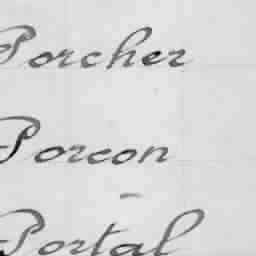 Porcher
Porcon
Portal